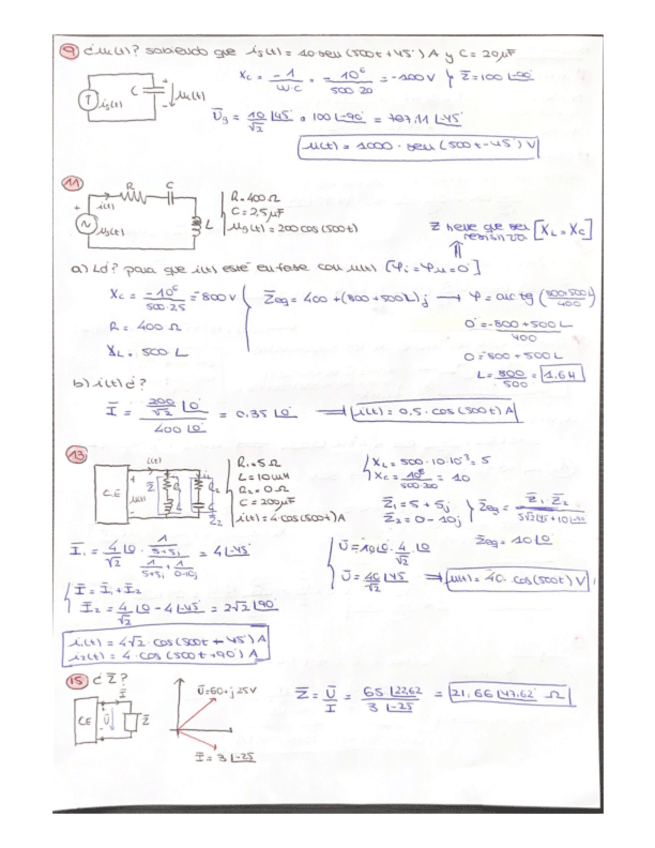 9 ¿u(t)? sabiendo que is(t) = 10·sen(500t+45°) A y C = 20µF
Xc = -1/(W·C) = -10^6/(500·20) = -100 V } Z̄ = 100 |-90°
C is(t) u(t)
+
-
Ū9 = 10/√2 |45° · 100 |-90° = 707.11 |-45°
u(t) = 1000 · sen(500t-45°) V
11 R C
i(t)
+
-
L
us(t)
R = 400 Ω
C = 2,5µF
us(t) = 200 cos(500t)
Z tiene que ser resistiva [XL = Xc]
⇑
a) L¿? para que i(t) esté en fase con u(t) [φi = φu = 0°]
Xc = -10^6/(500·2.5) = -800 V
Z̄eq = 400 + (800+500L)j → φ = arc tg (800+500L/400)
R = 400 Ω
0 = -800+500L/400
XL = 500 L
0 = 800 + 500L
L = 800/500 = 1.6 H
b) i(t)¿?
Ī = (200/√2 |0°)/(400 |0°) = 0.35 |0° ⟹ i(t) = 0,5·cos(500t) A
13 i(t)
C.E
+
-
u(t)
R1 = 5 Ω
L = 10mH
R2 = 0Ω
C = 200µF
i(t) = 4·cos(500t) A
XL = 500·10·10^-3 = 5
Xc = 10^6/(500·200) = 10
Z̄1 = 5 + 5j
Z̄2 = 0 - 10j
Z̄eq = Z̄1·Z̄2
Z̄eq = 10 |0°
Ī1 = 4/√2 |0 · (1/(5+5j))/(1/(5+5j) + 1/(0-10j)) = 4 |-45°
Ū = 10|0° · 4/√2 |0
Ū = 40/√2 |45° ⟹ u(t) = 40 · cos(500t) V
Ī = Ī1 + Ī2
Ī2 = 4/√2 |0 - 4 |-45° = 2√2 |90°
i(t) = 4√2 · cos(500t - 45°) A
i2(t) = 4 · cos(500t +90°) A
15 ¿Z̄?
CE
Ī
+
-
Ū
Z̄
Ū = 60 + j 25 V
Ī = 3 |-25
Z̄ = Ū/I = 65 |22,62/3 |-25 = 21,66 |47.62° Ω